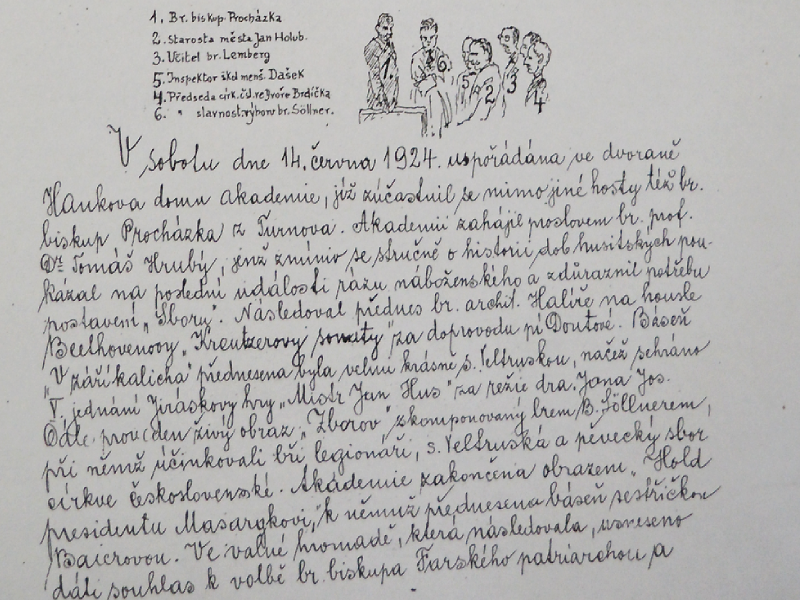 1. Br. biskup Procházka
2. Starosta města Jan Holub.
3. Učitel br. Lemberg
5. Inspektor škol menš. Dašek
4. Předseda círk. čsl. ve Dvoře Brdička
6. " slavnost. výboru br. Söllner.
1.
6
5
2
3
4
V sobotu dne 14. června 1924. uspořádána ve dvoraně
Hankova domu akademie, jíž zúčastnil se mimo jiné hosty též br.
biskup Procházka z Turnova. Akademii zahájil proslovem br. prof.
Dr. Tomáš Hrubý, jenž zmíniv se stručně o historii dob husitských pou-
kázal na poslední události rázu náboženského a zdůraznil potřebu
postavení „Sboru". Následoval přednes br. archit. Halíře na housle
Beethovenovy „Kreutzerovy sonáty" za doprovodu pí Doutové. Báseň
„V záři kalicha" přednesena byla velmi krásně s. Veltruskou, načež sehráno
V. jednání Jiráskovy hry „Mistr Jan Hus" za režie dra. Jana Jos.
Dále proveden živý obraz „Zborov", zkomponovaný brem B. Söllnerem,
při němž účinkovali bři legionáři, s. Veltruská a pěvecký sbor
církve československé. Akademie zakončena obrazem „Hold
presidentu Masarykovi," k němuž přednesena báseň sestřičkou
Baierovou. Ve valné hromadě, která následovala, usneseno
dáti souhlas k volbě br. biskupa Farského patriarchou a